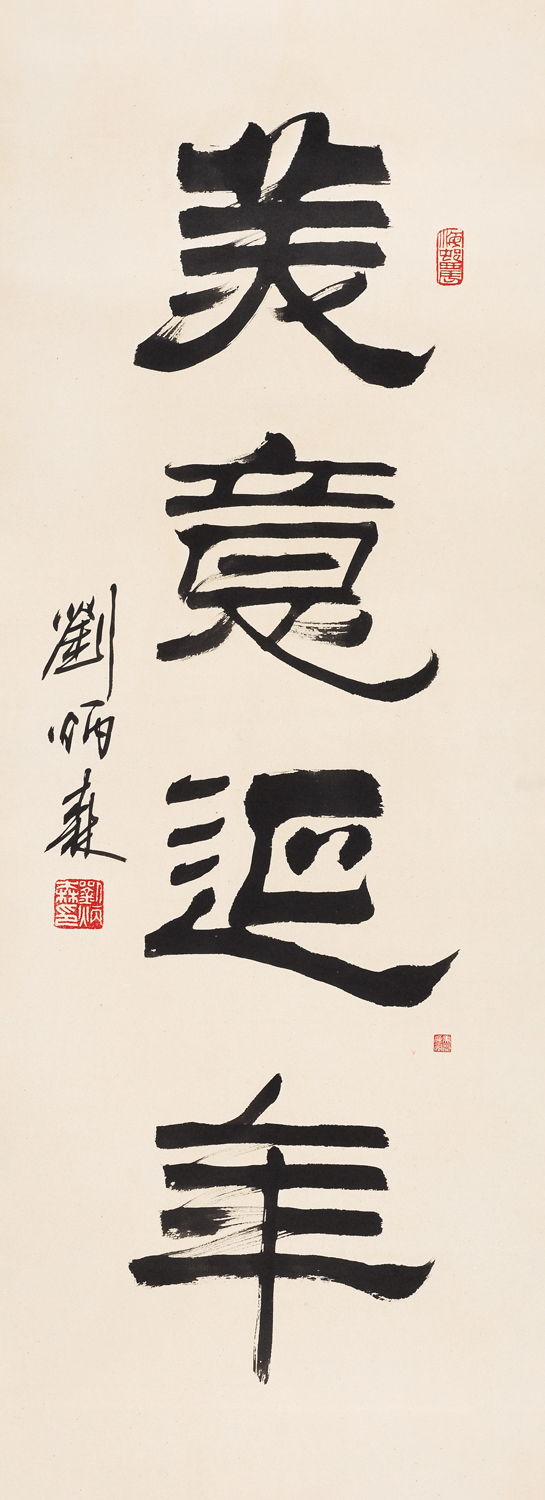 美意延年
劉炳森
劉炳森印